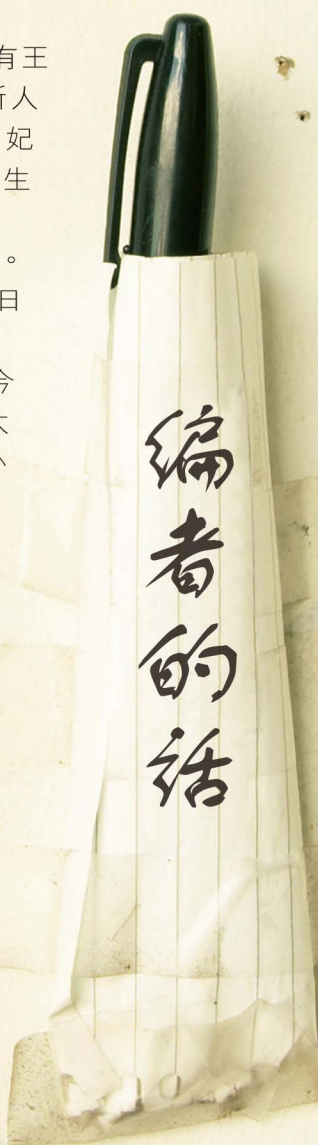 有王
人
妃
生
。
日
今
编者的话